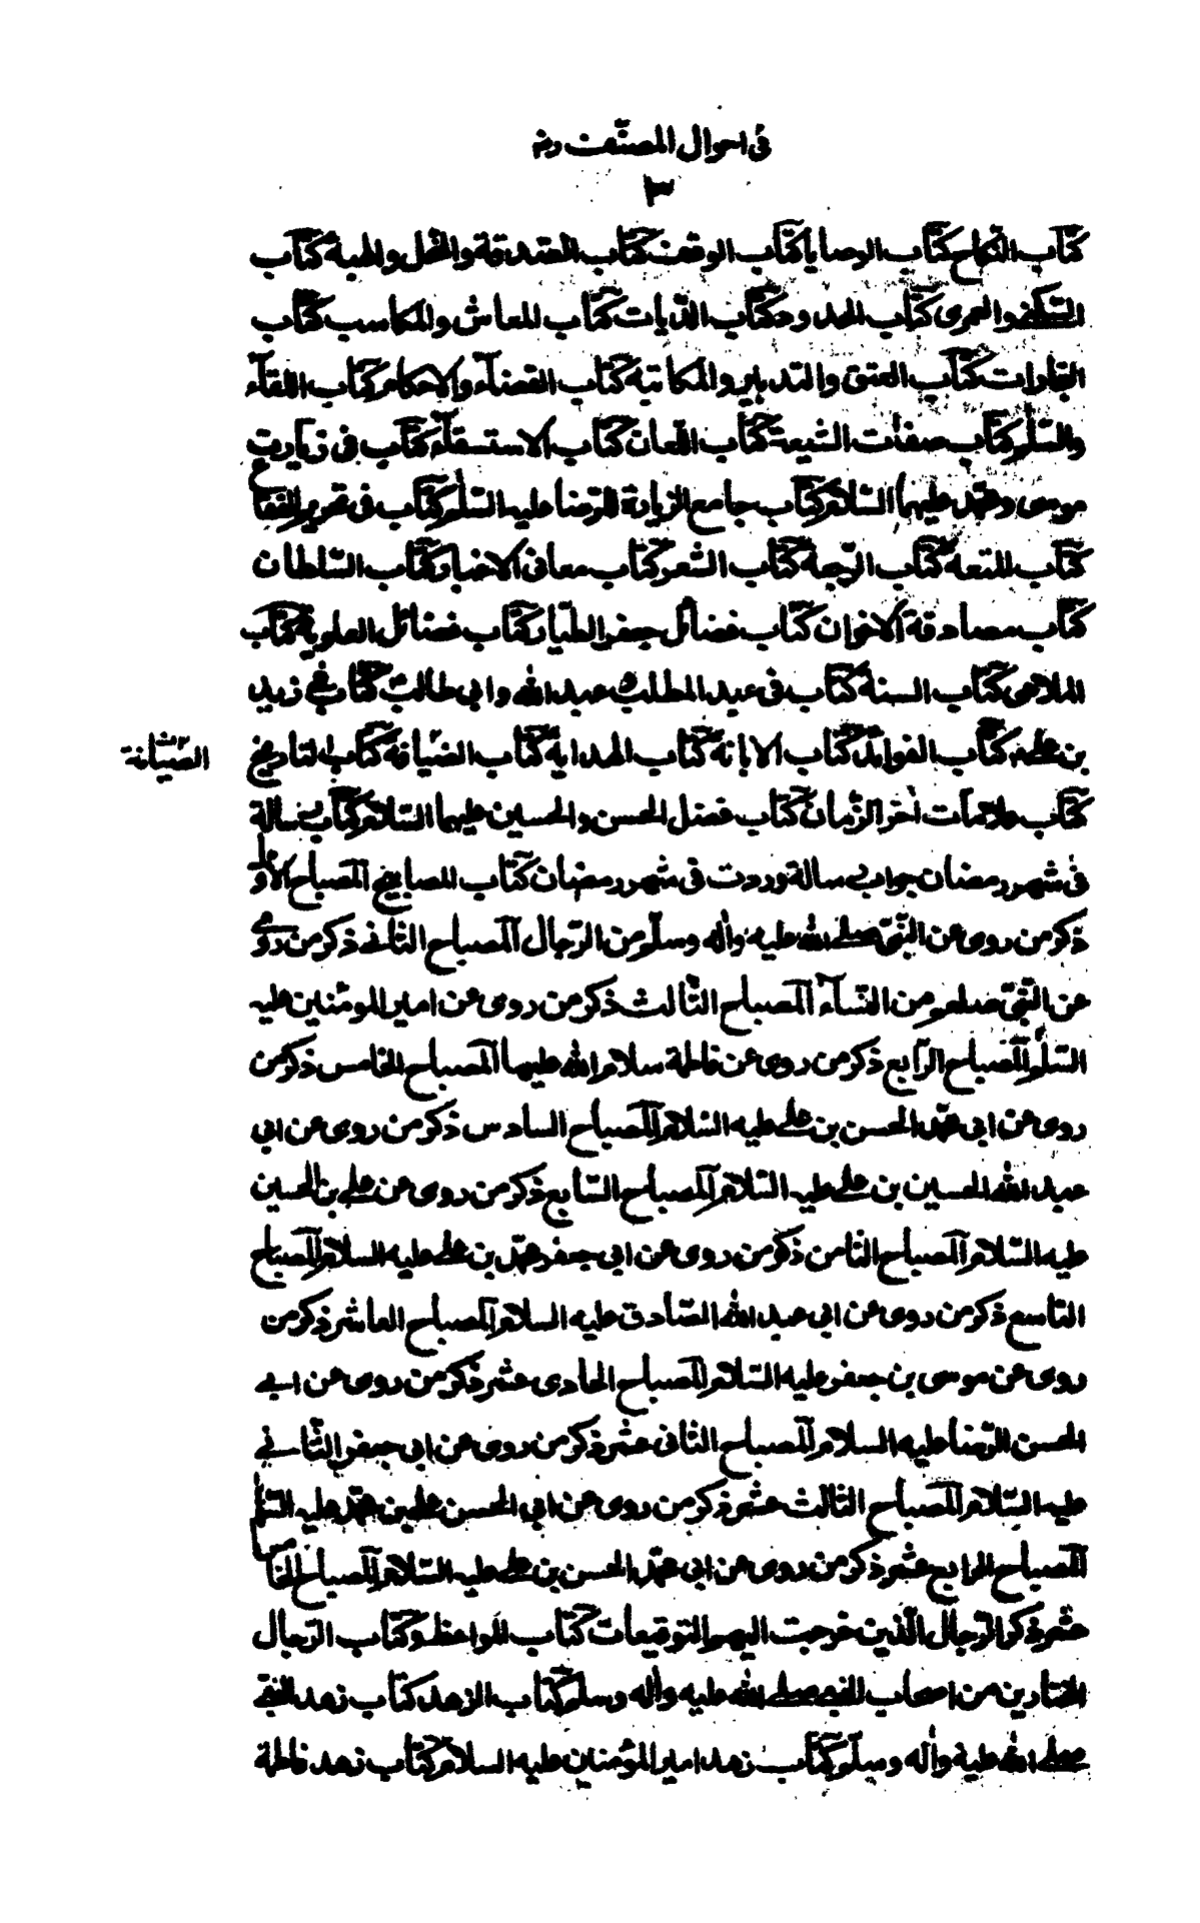 فی احوال المصنّف ره
٣
کتاب النکاح کتاب الوصایا کتاب الوقف کتاب الصّدقة والنّحل والهبة کتاب
السّکنی والعمری کتاب الحدود کتاب الدّیات کتاب المعایش والمکاسب کتاب
التجارات کتاب العتق والتدبیر والمکاتبة کتاب القضآء والاحکام کتاب اللقآء
والسّلم کتاب صفات الشّیعة کتاب اللّعان کتاب الاستسقآء کتاب فی زیارت
موسی ومحمّد علیهما السّلام کتاب جامع الزیارة للرّضا علیه السّلم کتاب فی تحریم الفقاع
کتاب المتعة کتاب الرّجعة کتاب الشّعر کتاب معانی الاخبار کتاب السّلطان
کتاب مصادقة الاخوان کتاب فضائل جعفر الطیّار کتاب فضائل العلویة کتاب
الملاهی کتاب السنة کتاب فی عبد المطلب عبد الله وابی طالب کتاب فی زید
بن علی کتاب الفوائد کتاب الابانة کتاب الهدایة کتاب الضّیافة کتاب التاریخ
الصّیانة
کتاب علامات آخر الزّمان کتاب فضل الحسن والحسین علیهما السّلام کتاب رسالة
فی شهر رمضان جواب رسالة وردت فی شهر رمضان کتاب المصابیح المصباح الاوّل
ذکر من روی عن النّبیّ صلی الله علیه وآله وسلّم من الرّجال المصباح الثّانی ذکر من روی
عن النّبیّ صلعم من النّسآء المصباح الثّالث ذکر من روی عن امیر المؤمنین علیه
السّلم المصباح الرّابع ذکر من روی عن فاطمة سلام الله علیها المصباح الخامس ذکر من
روی عن ابی محمّد الحسن بن علی علیه السّلام المصباح السادس ذکر من روی عن ابی
عبد الله الحسین بن علی علیه السّلام المصباح السّابع ذکر من روی عن علی بن الحسین
علیه السّلام المصباح الثّامن ذکر من روی عن ابی جعفر محمّد بن علی علیه السلام المصباح
التاسع ذکر من روی عن ابی عبد الله الصّادق علیه السلام المصباح العاشر ذکر من
روی عن موسی بن جعفر علیه السّلام المصباح الحادی عشر ذکر من روی عن ابی
الحسن الرّضا علیه السلام المصباح الثانی عشر ذکر من روی عن ابی جعفر الثّانی
علیه السّلام المصباح الثالث عشر ذکر من روی عن ابی الحسن علی بن محمّد علیه السّلم
المصباح الرابع عشر ذکر من روی عن ابی محمّد الحسن بن علی علیه السّلام المصباح الخامس
عشر ذکر الرّجال الّذین خرجت الیهم التوقیعات کتاب المواعظ وکتاب الرّجال
المختارین من اصحاب النبی صلی الله علیه وآله وسلم کتاب الزهد کتاب زهد النبی
صلی الله علیه وآله وسلّم کتاب زهد امیر المؤمنین علیه السلام کتاب زهد فاطمة